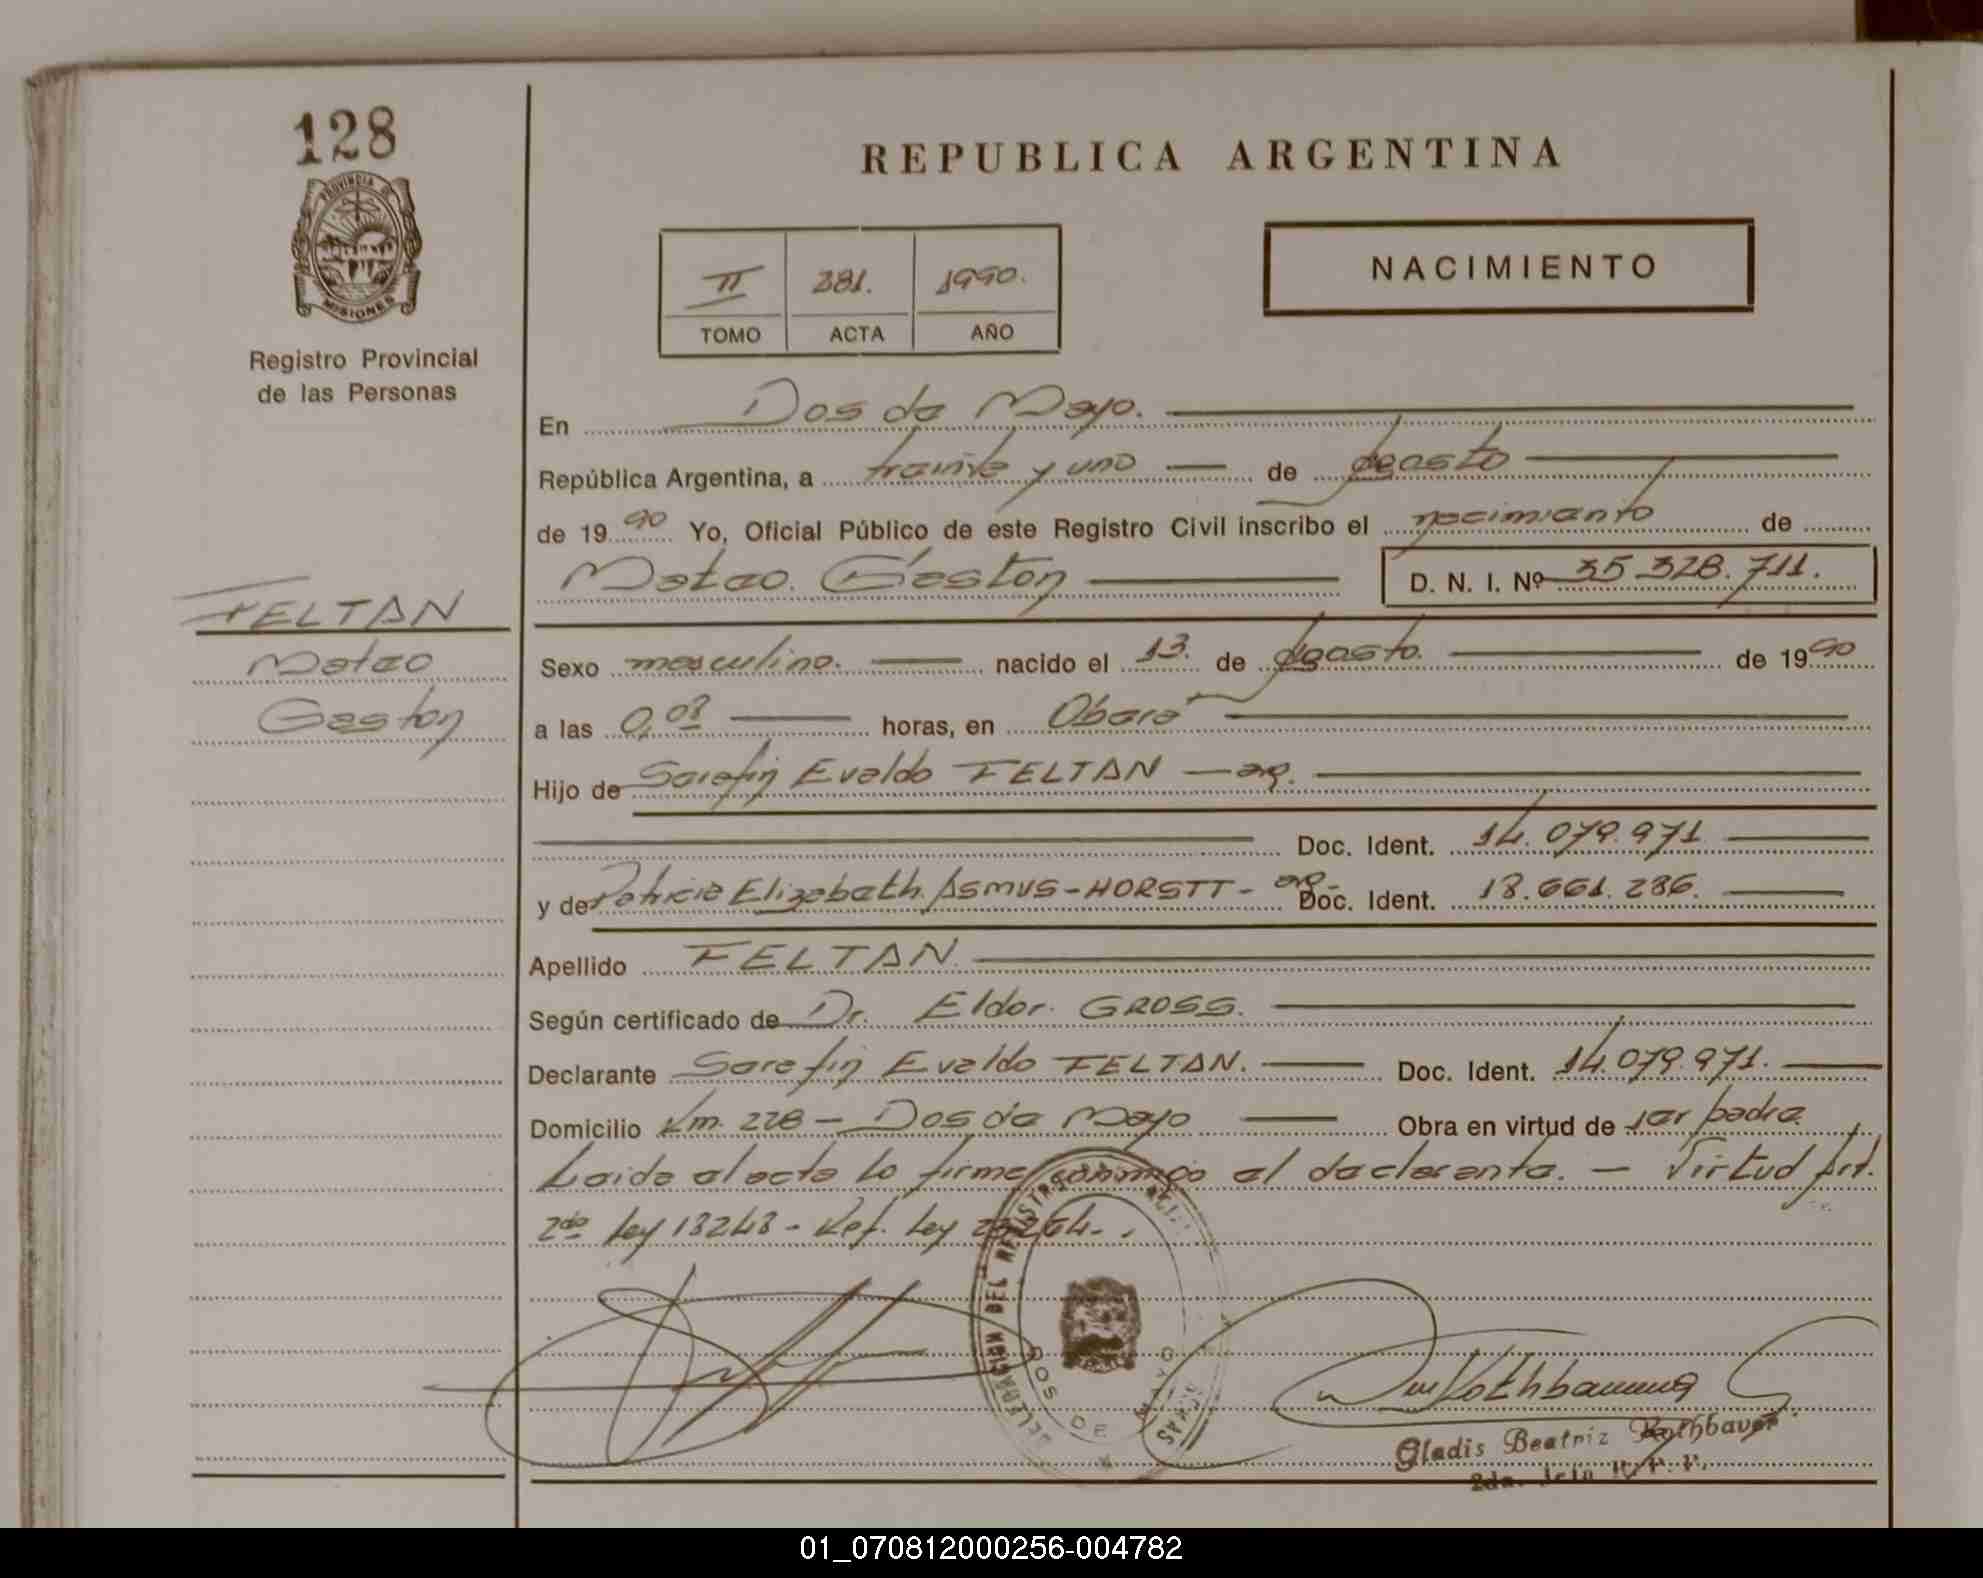 128
PROVINCIA DE
MISIONES
Registro Provincial
de las Personas
FELTAN
Mateo
Gaston
REPUBLICA ARGENTINA
II 281. 1990.
TOMO ACTA AÑO
NACIMIENTO
En Dos de Mayo.
República Argentina, a treinta y uno de Agosto
de 1990 Yo, Oficial Público de este Registro Civil inscribo el nacimiento de
Mateo Gaston D. N. I. Nº 35 328.711.
Sexo masculino. nacido el 13. de Agosto. de 1990
a las 0,03 horas, en Obera
Hijo de Serefin Evaldo FELTAN — arg.
Doc. Ident. 14.079.971
y de Patricia Elizabeth ASMUS - HORSTT - arg. Doc. Ident. 18.661.286.
Apellido FELTAN.
Según certificado de Dr. Eldor. GROSS.
Declarante Serefin Evaldo FELTAN. Doc. Ident. 14.079.971.
Domicilio Km. 228 - Dos de Mayo Obra en virtud de ser padre
Leida el acta lo firma conmigo el declarante. — Virtud Art.
2do Ley 18248 - Ref. Ley 23264.
DELEGACION DEL REGISTRO
DOS DE MAYO
Gladis Beatriz Rothbauer
01_070812000256-004782